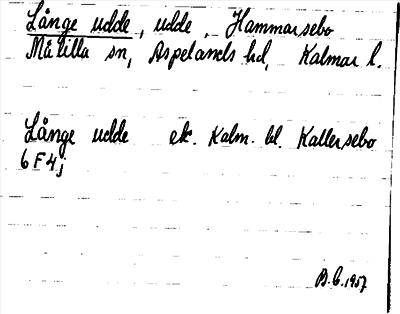 Långe udde, udde, Hammarsebo
Målilla sn, Aspelands hd, Kalmar l.
Långe udde ek. Kalm. bl. Kallersebo
6 F 4j
B.C. 1957